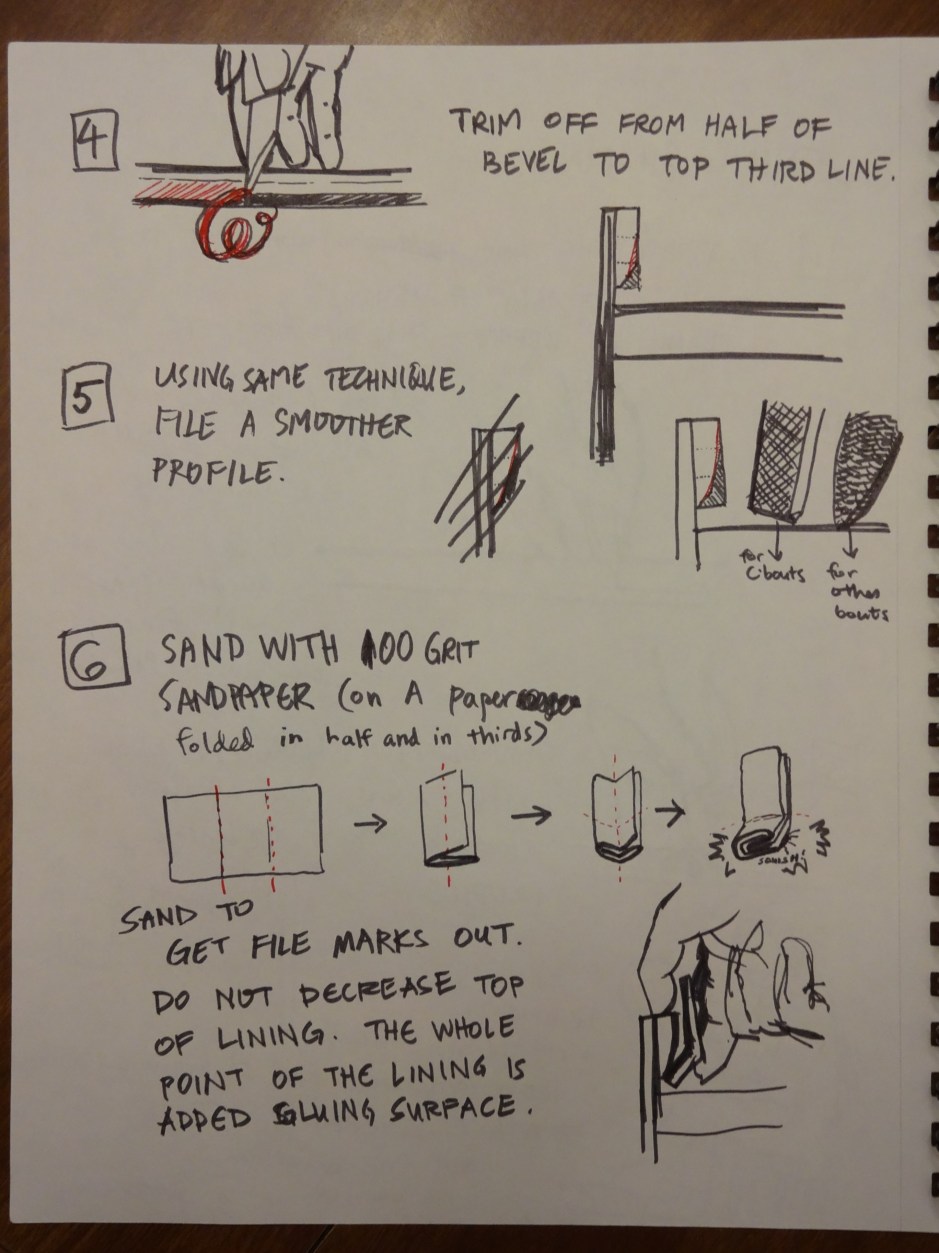 4
TRIM OFF FROM HALF OF
BEVEL TO TOP THIRD LINE.
5
USING SAME TECHNIQUE,
FILE A SMOOTHER
PROFILE.
for
C bouts
for
other
bouts
6
SAND WITH 100 GRIT
SANDPAPER (on A paper
folded in half and in thirds)
SQUISH!
SAND TO
GET FILE MARKS OUT.
DO NOT DECREASE TOP
OF LINING. THE WHOLE
POINT OF THE LINING IS
ADDED GLUING SURFACE.